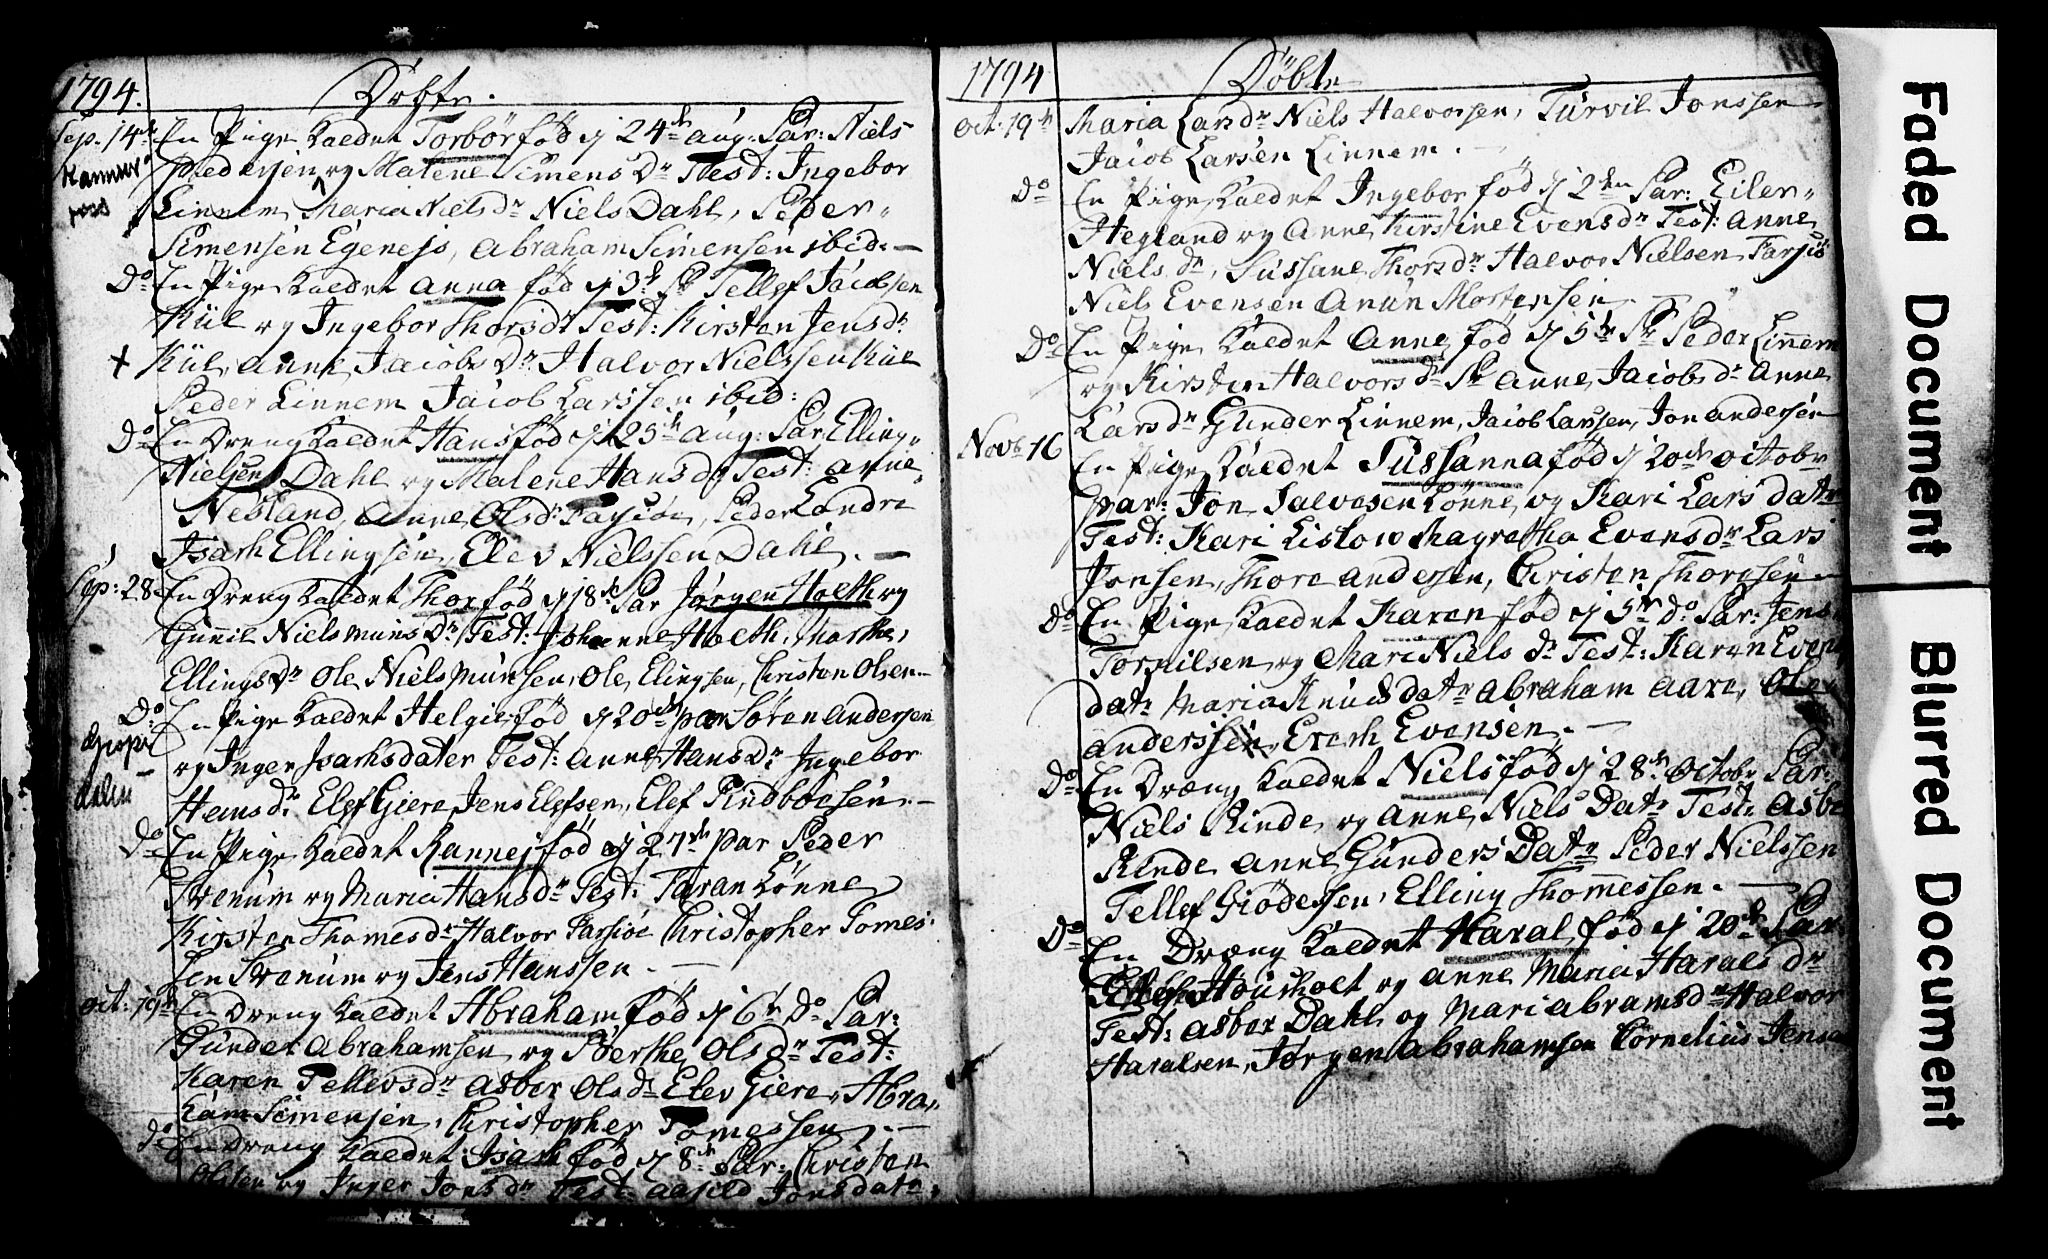 1794. Døbte.
Sep. 14de En Pige kaldet Torbør fød d 24de aug: Par: Niels
Pedersen og Malene Simens Dr Test: Ingebor
Linnem, Maria Niels dr Niels Dahl, Peder
Simensen Egenejs, Abraham Simensen ibid. —
Do En Pige kaldet Anna fød d 3d Pr Tellef Jacobsen
Kiil og Ingebor Thorsdr Test: Kirsten Jensdr
+ Kiil, Anne Jacobs Dr Halvor Nielssen Kiil
Peder Linnem Jacob Larssen ibid:
Do En Dreng kaldet Hans fød d 25de aug: Par Elling
Nielsen Dahl og Malene Hansdr Test: Anne
Nesland, Anne Olsdr, Peder
Isach Ellingsen, Elev Nielssen Dahl. —
Sep: 28 En Dreng kaldet Thor fød d 18de Par Jørgen Hoeth og
Gunnil Nielsmuns Dr Test: Johanne Hoeth, Marthe
Ellings Dr Ole Niels Munsen, Ole Elingsen, Christen Olsen
Do En Pige kaldet Helgie fød d 20de par Søren Andersen
og Inger Isachsdater Test: Anne Hans Dr Ingebor
Hansdr Elef Giere Jens Elefsen, Elef —
Do En Pige kaldet Rannej fød d 27de par Peder
Svenum og Maria Hansdr Test: Taran Lønne
Kirsten Thomesdr Halvor Farsiøe Christopher Tomes-
sen Svenum og Jens Hanssen. —
Oct: 19de En Dreng kaldet Abraham fød d 6te Do Par:
Gunder Abrahamsen og Berthe Olsdr Test:
Karen Tellevsdr Asbor Olsdr Elev Giere, Abra-
ham Simensen, Christopher Tomessen. —
Do En Dreng kaldet Isach fød d 8de Par: Christen
Olsen og Inger Jonsdr Test: Aasild Jonsdatr
1794 Døbte
Oct: 19de Maria Larsdr Niels Halvorsen, Turvil Jonssen
Jacob Larsen Linnem. —
Do En Pige kaldet Ingebor fød d 2den Par: Eiler
Hegland og Anne Kirstine Evensdr Test: Anne
Niels dr, Sussane Thorsdr Halvor Nielsen Farsiø
Niels Evensen Anun Mortensen. —
Do En Pige kaldet Anne fød d 5te Pr Peder Linnem
og Kirsten Halvorsdr Pr Anne Jacobsdr Anne
Larsdr Gunder Linnem, Jacob Larssen, Jon Andersen
Novbr 16 En Pige kaldet Sussanna fød d 20de Octobr
par: Jon Salvesen Lønne og Kari Lars datr
Test: Kari Lislow Magretha Evensdr Lars
Jonsen, Thore Andersen, Christen Thoresen —
Do En Pige kaldet Karen fød d 5te Do Par: Jens
Torjulsen og Mari Niels Dr Test: Karen Evens
datr Maria Knuds datr Abraham Aare, Ole
Anderssen, Erech Evensen. —
Do En Dreng kaldet Niels fød d 28de Octobr Par:
Niels Rinde og Anne Niels Datr Test: Asbe
Rinde Anne Gunders Datr Peder Nielssen
Tellef Giødessen, Elling Thomessen. —
Do En Dreng kaldet Haral fød d 20de Par
og Anne Maria Harals dr
Test: Asbor Dahl og Mari Abramsdr Halvor
Haralsen, Jørgen Abrahamsen Cornelius Jensen
Faded Document
Blurred Document